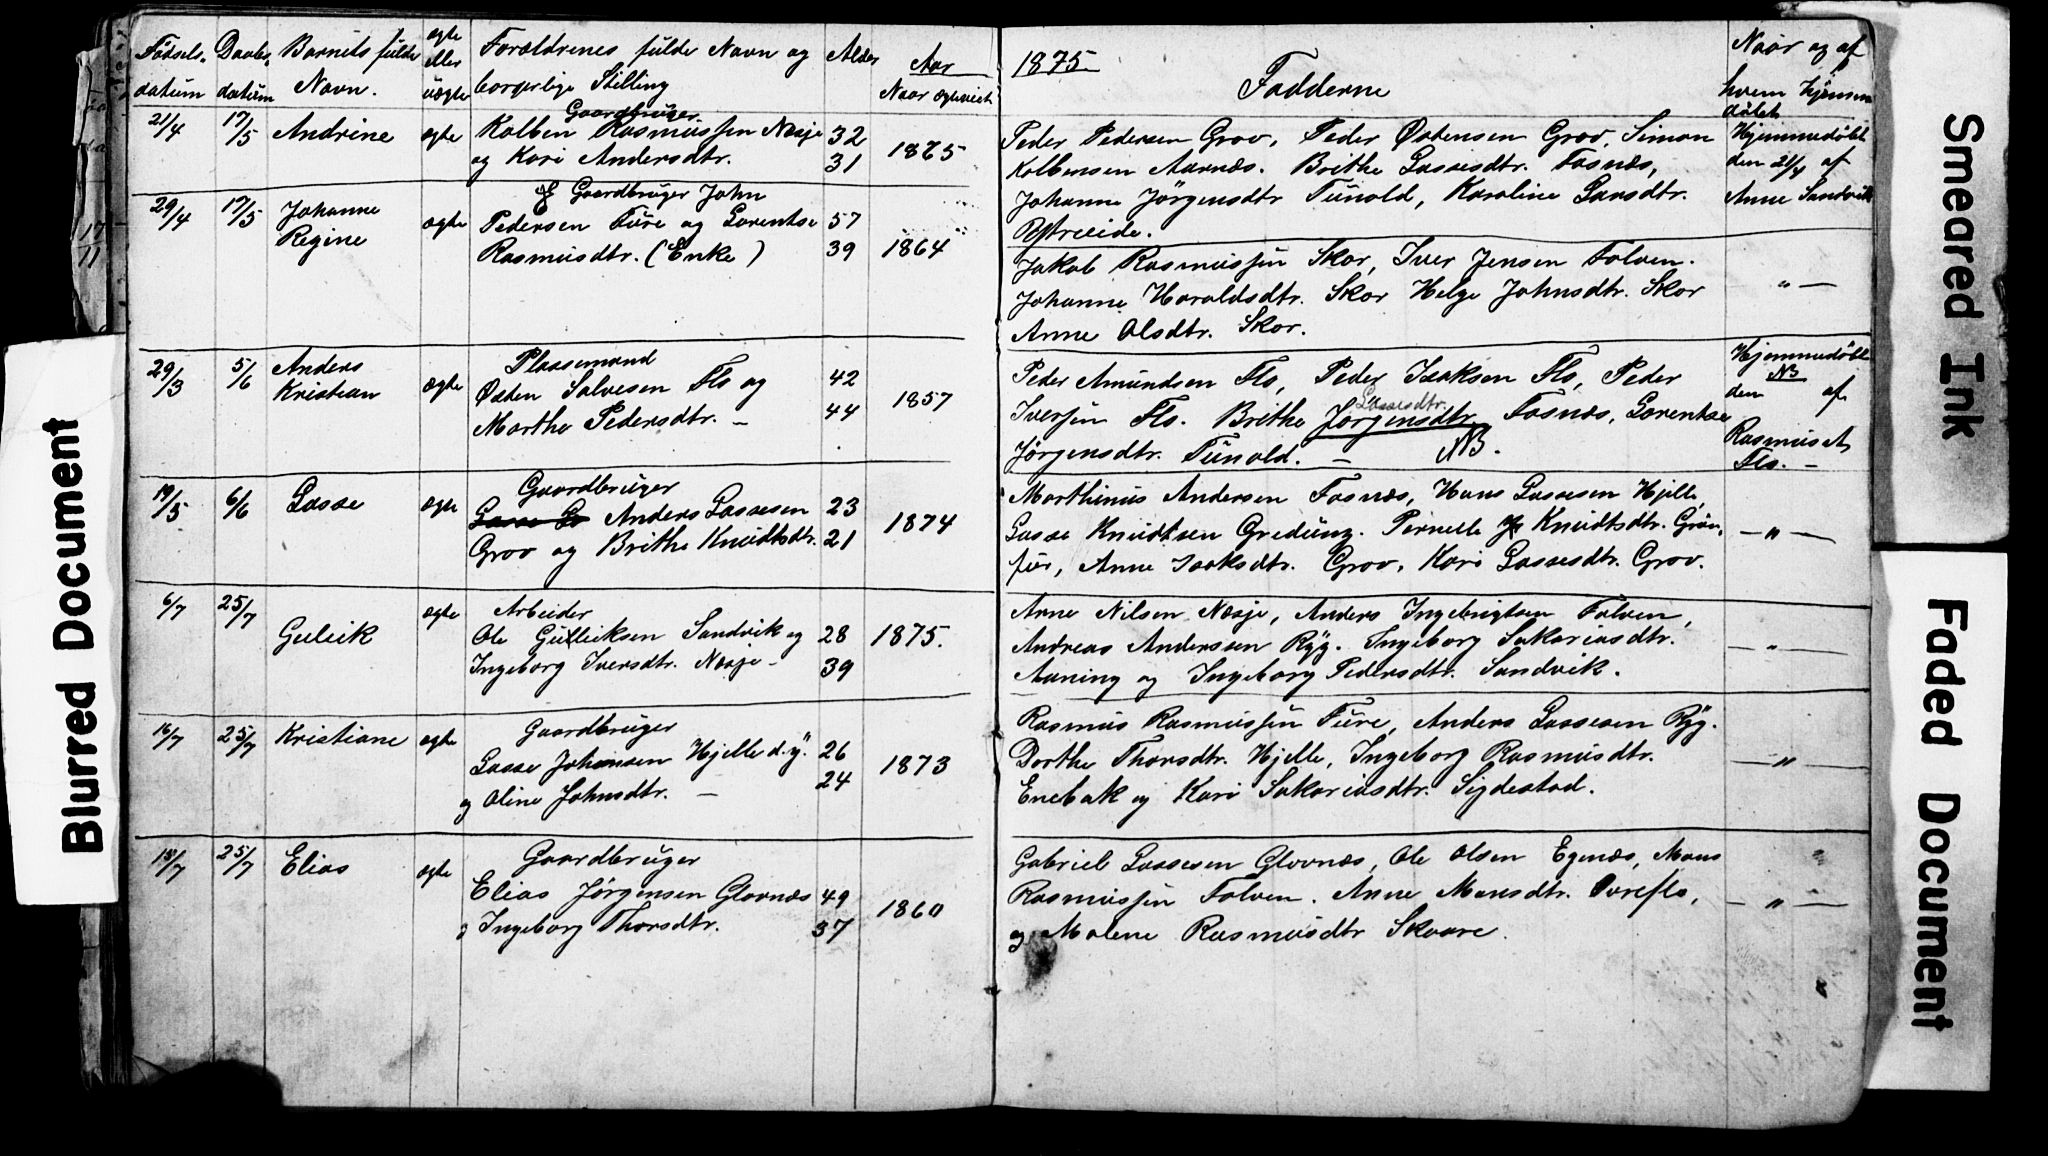 Fødsels-
datum
Daabs-
datum
Barnets fulde
Navn.
ægte
eller
uægte
Forældrenes fulde Navn og
borgerlige Stilling
Alder
Aar
Naar ægteviet
1875
Fadderne
Naar og af
hvem hjemme
døbt
21/4 17/5 Andrine ægte
Gaardbruger
Kolben Rasmussen Næsje 32
og Kari Andersdtr. 31
1865
Peder Pedersen Grov, Peder Østensen Grov, Simon
Kolbensen Aarnæs. Brithe Lassesdtr. Fosnæs,
Johanne Jörgensdtr Tunold, Karoline Larsdtr.
Ystreeide.
Hjemmedøbt
den 21/4 af
Anne Sandvik
29/4 17/5 Johanne
Regine
ægte
Gaardbruger John
Pedersen Füre og Lorentse 57
Rasmusdtr. (Enke) 39
1864
Jakob Rasmussen Skor, Iver Jensen Tolven.
Johanne Haraldsdtr. Skor Helge Johnsdtr. Skor
Anne Olsdtr. Skor.
" —
29/3 5/6 Anders
Kristian
ægte
Pladsemand
Østen Salvesen Flo og 42
Marthe Pedersdtr. — 44
1857
Peder Amundsen Flo, Peder Isaksen Flo, Peder
Lassesdtr.
Iversen Flo. Brithe Jørgensdtr. Fosnæs, Lorentse
Jørgensdtr. Tunold. — NB.
Hjemmedøbt
NB
den af
Rasmus A
Flo. —
19/5 6/6 Lasse ægte
Gaardbruger
Anders Lassesen 23
Grov og Brithe Knudtsdtr. 21
1874
Marthinus Andersen Fosnæs, Hans Lassesen Hjelle,
Lasse Knudtsen Gredung. Pernelle Knudtsdtr. Grön
für, Anne Isaksdtr. Grov, Kari Lassesdtr. Grov.
— " —
6/7 25/7 Guleik ægte
Arbeider
Ole Gulleiksen Sandvik og 28
Ingeborg Iversdtr. Næsje — 39
1875.
Arne Nilsen Næsje, Anders Ingebrigtsen Tolven,
Andreas Anderssen Ryg. Ingeborg Sakariasdtr.
Aaning og Ingeborg Pedersdtr. Sandvik.
— " —
16/7 25/7 Kristiane ægte
Gaardbruger
Lasse Johansen Hjelle d.y. 26
og Oline Johnsdtr. — 24
1873
Rasmus Rasmussen Füre, Anders Lassesen Ryg.
Dorthe Thorsdtr. Hjelle, Ingeborg Rasmusdtr.
Enebak og Kari Sakariasdtr. Sigdestad.
— " —
15/7 25/7 Elias ægte
Gaardbruger
Elias Jørgensen Glovnæs 49
og Ingeborg Thorsdtr. 37
1860
Gabriel Lassesen Glovnæs, Ole Olsen Egenæs, Mons
Rasmussen Tolven. Anne Monsdtr. Øvreflo,
og Malene Rasmusdtr Skaare.
— " —
17
11
Blurred Document
Smeared Ink
Faded Document